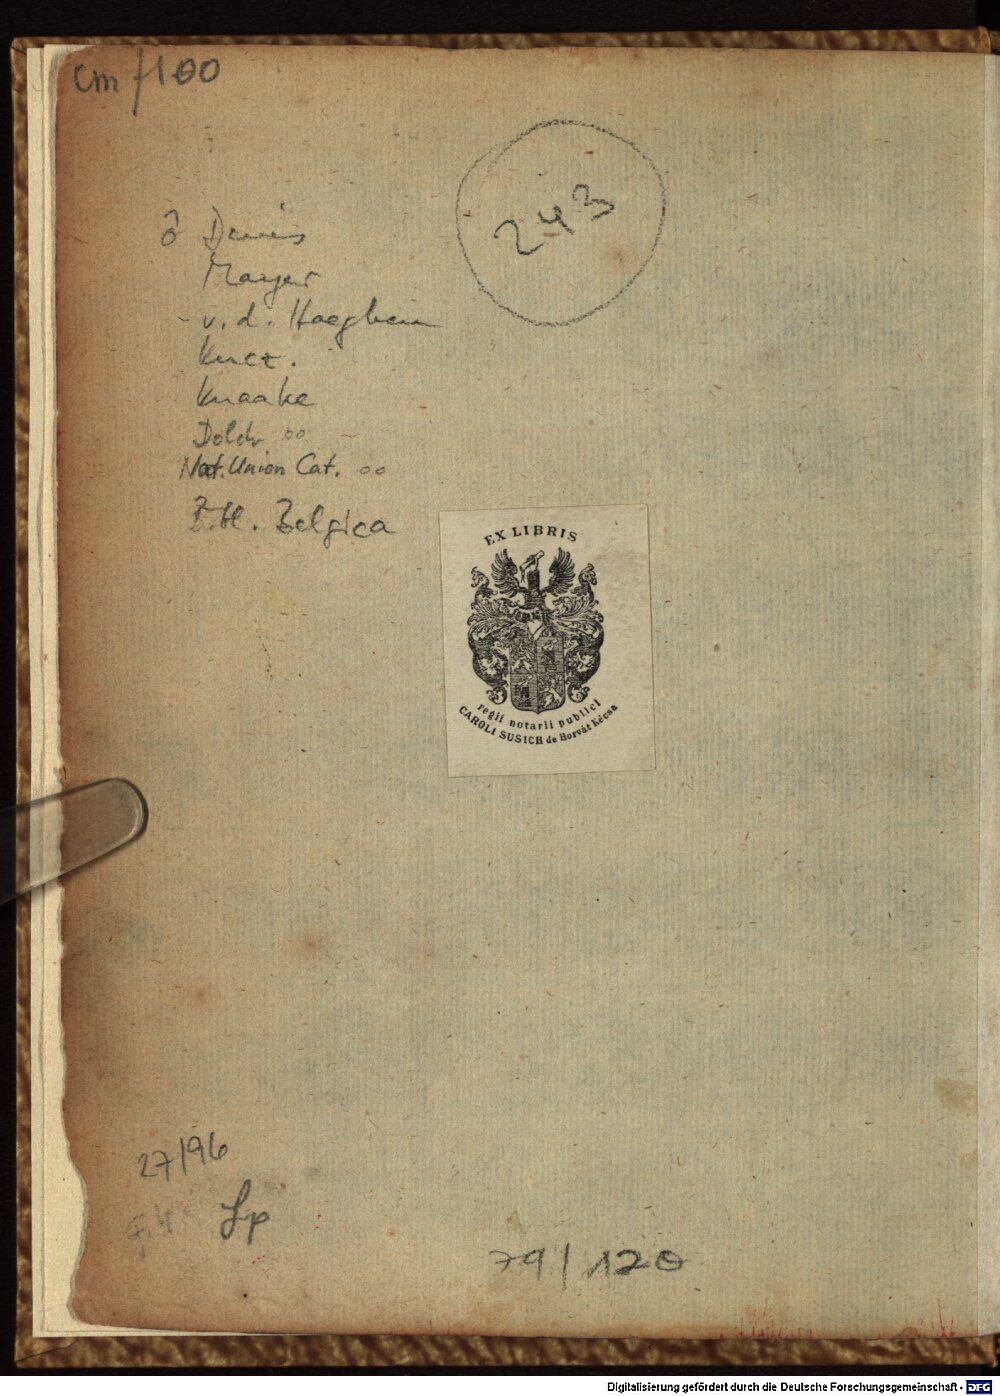 cm /100
243
Ô Denis
Mayer
v. d. Haeghen
Kucz.
Knaake
Dolch oo
Nat. Union Cat. oo
Bibl. Belgica
EX LIBRIS
regii notarii publici
CAROLI SUSICH de Horvát Kécsa
27/96
Lp
79/120
Digitalisierung gefördert durch die Deutsche Forschungsgemeinschaft - DFG